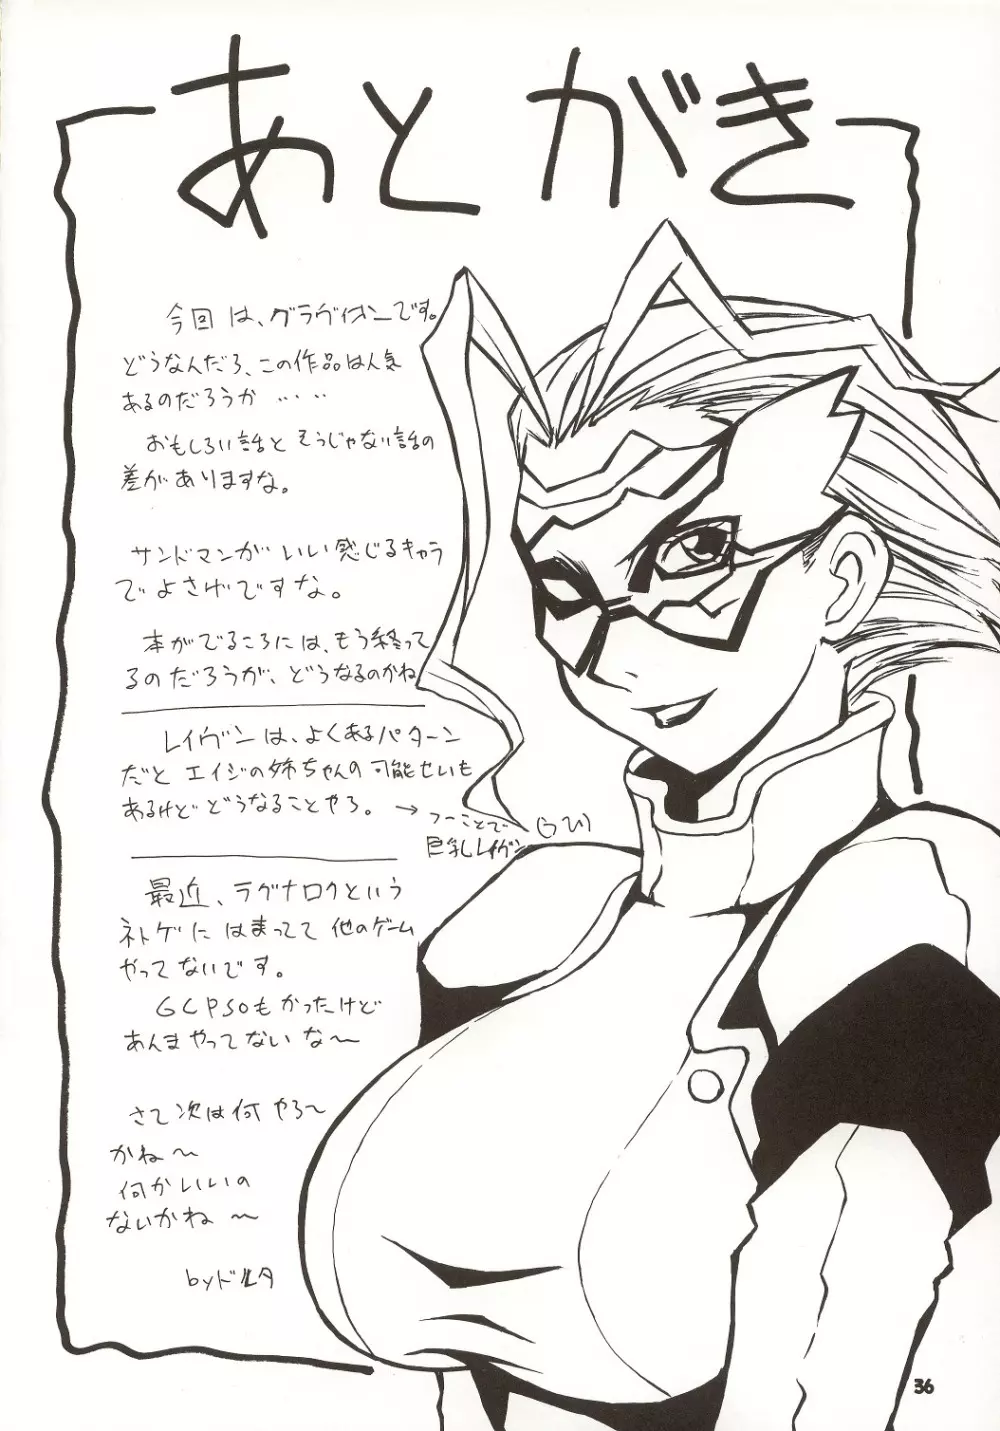 あとがき
今回は、グラヴィオンです。
どうなんだろ、この作品は人気
あるのだろうか ・・・・
おもしろい話と そうじゃない話の
差がありますな。
サンドマンが いい感じるキャラ
でよさげですな。
本がでるころには、もう終って
るのだろうが、どうなるのかね
レイヴンは、よくあるパターン
だと エイジの姉ちゃんの可能せいも
あるけど どうなることやら。 →
つーことで
巨乳レイヴン
最近、ラグナロクという
ネトゲに はまってて 他のゲーム
やってないです。
GCPSOも かったけど
あんま やってない な〜
さて 次は何 やろ〜
かね〜
何か いいの
ないかね 〜
by ドルタ
36